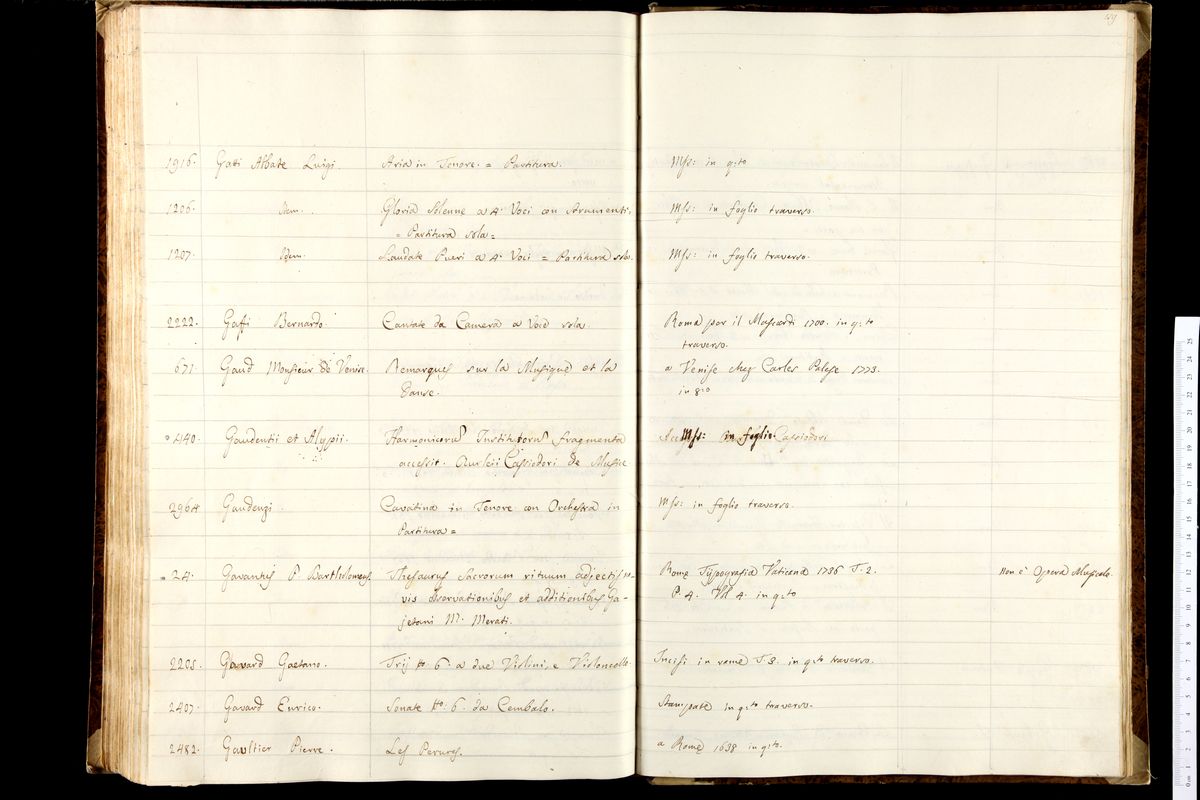 59
1916. Gatti Abbate Luigi. Aria in Tenore. = Partitura. Mss: in q.to
1206. Idem. Gloria Solenne a 4. Voci con Strumenti.
= Partitura sola = Mss: in foglio traverso.
1207. Idem. Laudate Pueri a 4. Voci = Partitura sola. Mss: in foglio traverso.
2222. Gaffi Bernardo. Cantate da Camera a Voce sola. Roma per il Mascardi 1700. in q.to
traverso.
671. Gaud Monsieur de Venise. Remarques sur la Musique et la a Venise chez Carles Palese 1773.
Danse. in 8.o
440. Gaudentii et Alypii. Harmonicorus Institutorus fragmenta Mss: in foglio Cassiodori
accessit. Aurelii Cassiodori de Musice
2964 Gaudenzi. Cavatina in Tenore con Orchestra in Mss: in foglio traverso.
Partitura =
= 24. Gavantus P. Bartholomeus. Thesaurus Sacrorum rituum adjectis no- Rome Typografia Vaticana 1736 T. 2. non è Opera Musicale
vis Observationibus et additionibus Ga- P. 4. Vol. 4. in q.to
jetani M. Merati.
2205. Gavard Gaetano. Trij No. 6. a due Violini, e Violoncello. Incisi in rame T. 3. in q.to traverso.
2407. Gavard Enrico. Sonate No. 6. da Cembalo. Stampate in q.to traverso.
2482. Gaultier Pierre. Les a Rome 1638 in q.to.